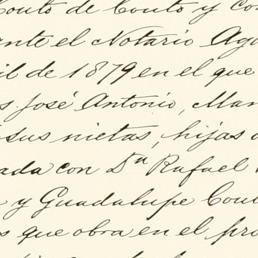 Couto de Couto y con
ante el Notario Agu
il de 1879 en el que
s José Antonio, Man
sus nietas, hijas d
ada con Dª Rafael
a y Guadalupe Cou
s que obra en el pro